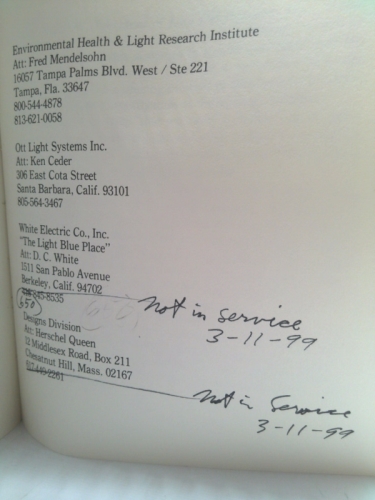 Environmental Health & Light Research Institute
Att: Fred Mendelsohn
16057 Tampa Palms Blvd. West / Ste 221
Tampa, Fla. 33647
800-544-4878
813-621-0058
Ott Light Systems Inc.
Att: Ken Ceder
306 East Cota Street
Santa Barbara, Calif. 93101
805-564-3467
White Electric Co., Inc.
"The Light Blue Place"
Att: D. C. White
1511 San Pablo Avenue
Berkeley, Calif. 94702
845-8535
Not in Service
3-11-99
Designs Division
Att: Herschel Queen
32 Middlesex Road, Box 211
Chesatnut Hill, Mass. 02167
Not in Service
3-11-99